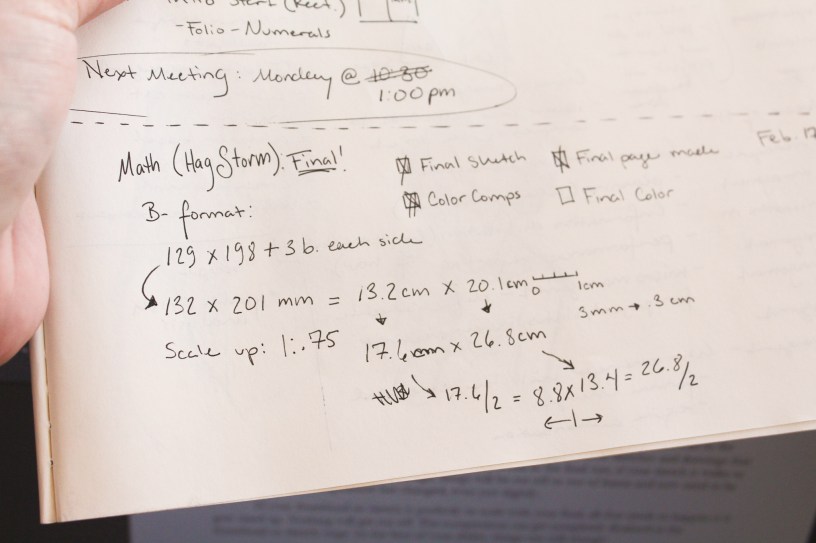 Start (Rect.)
-Folio-Numerals
Next Meeting: Monday @ 10:30
1:00pm
Feb. 12
Math (HagStorm): Final!
Final Sketch
Final page made
Color Comps
Final Color
B- format:
129 x 198 + 3 b. each side
132 x 201 mm = 13.2cm x 20.1cm
0 1cm
3mm → .3 cm
Scale up: 1:.75
17.6cm x 26.8cm
17.6/2 = 8.8x13.4 = 26.8/2